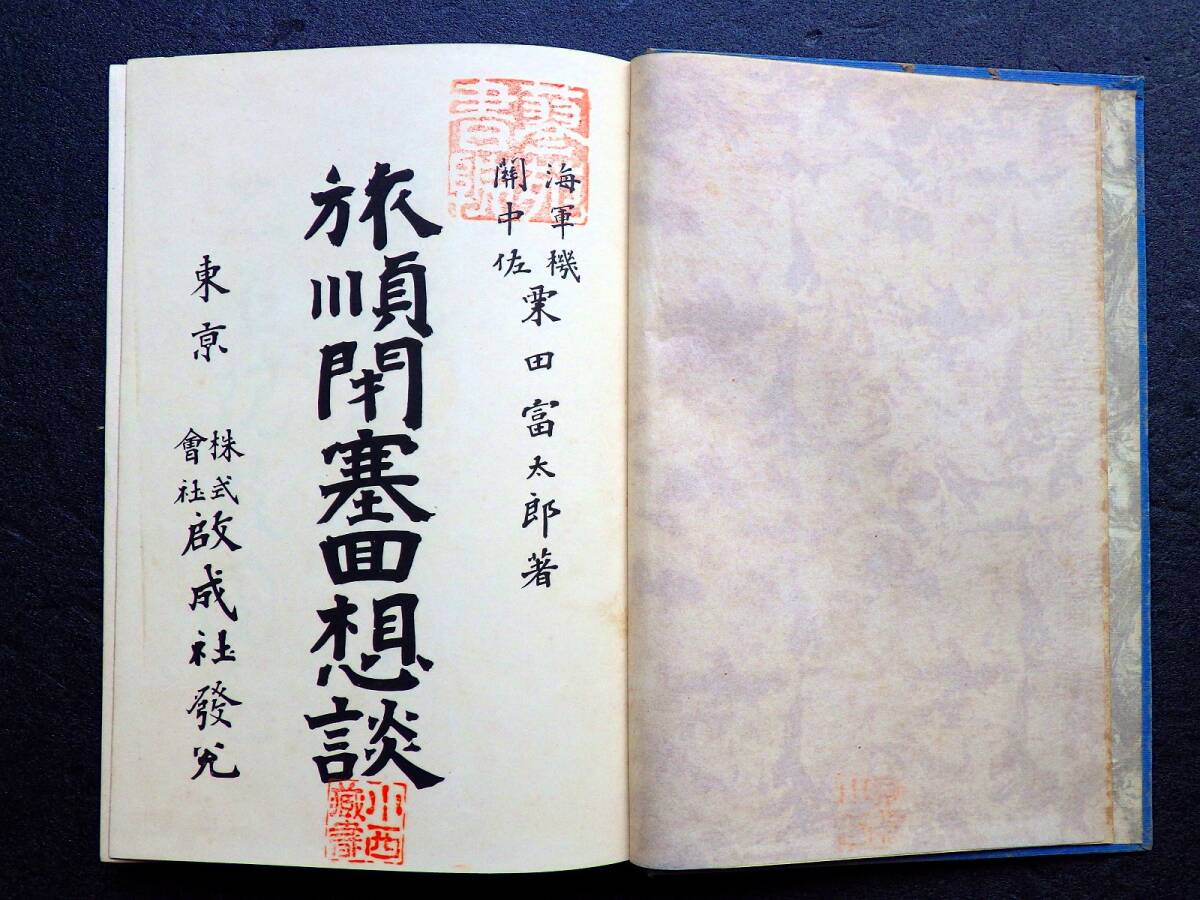 海軍機
關中佐
栗田富太郎著
旅順閉塞回想談
小西
藏書
東京
株式
會社
啟成社發兌